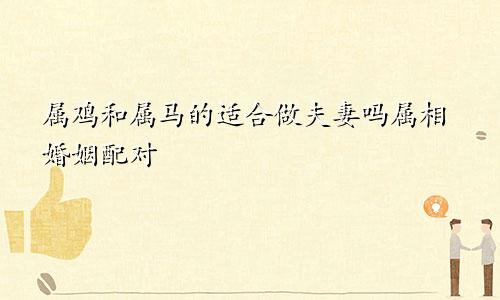 属鸡和属马的适合做夫妻吗属相
婚姻配对